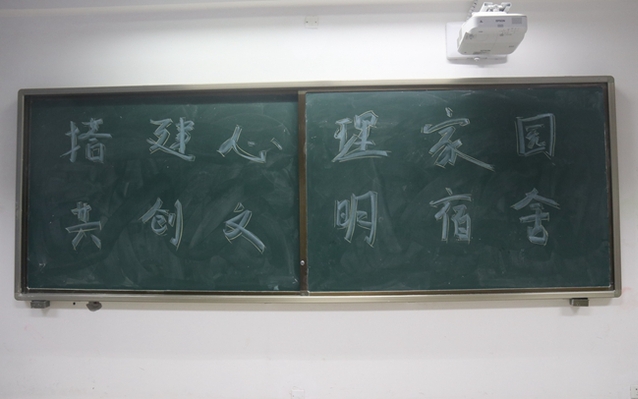 搭建心理家园
共创文明宿舍